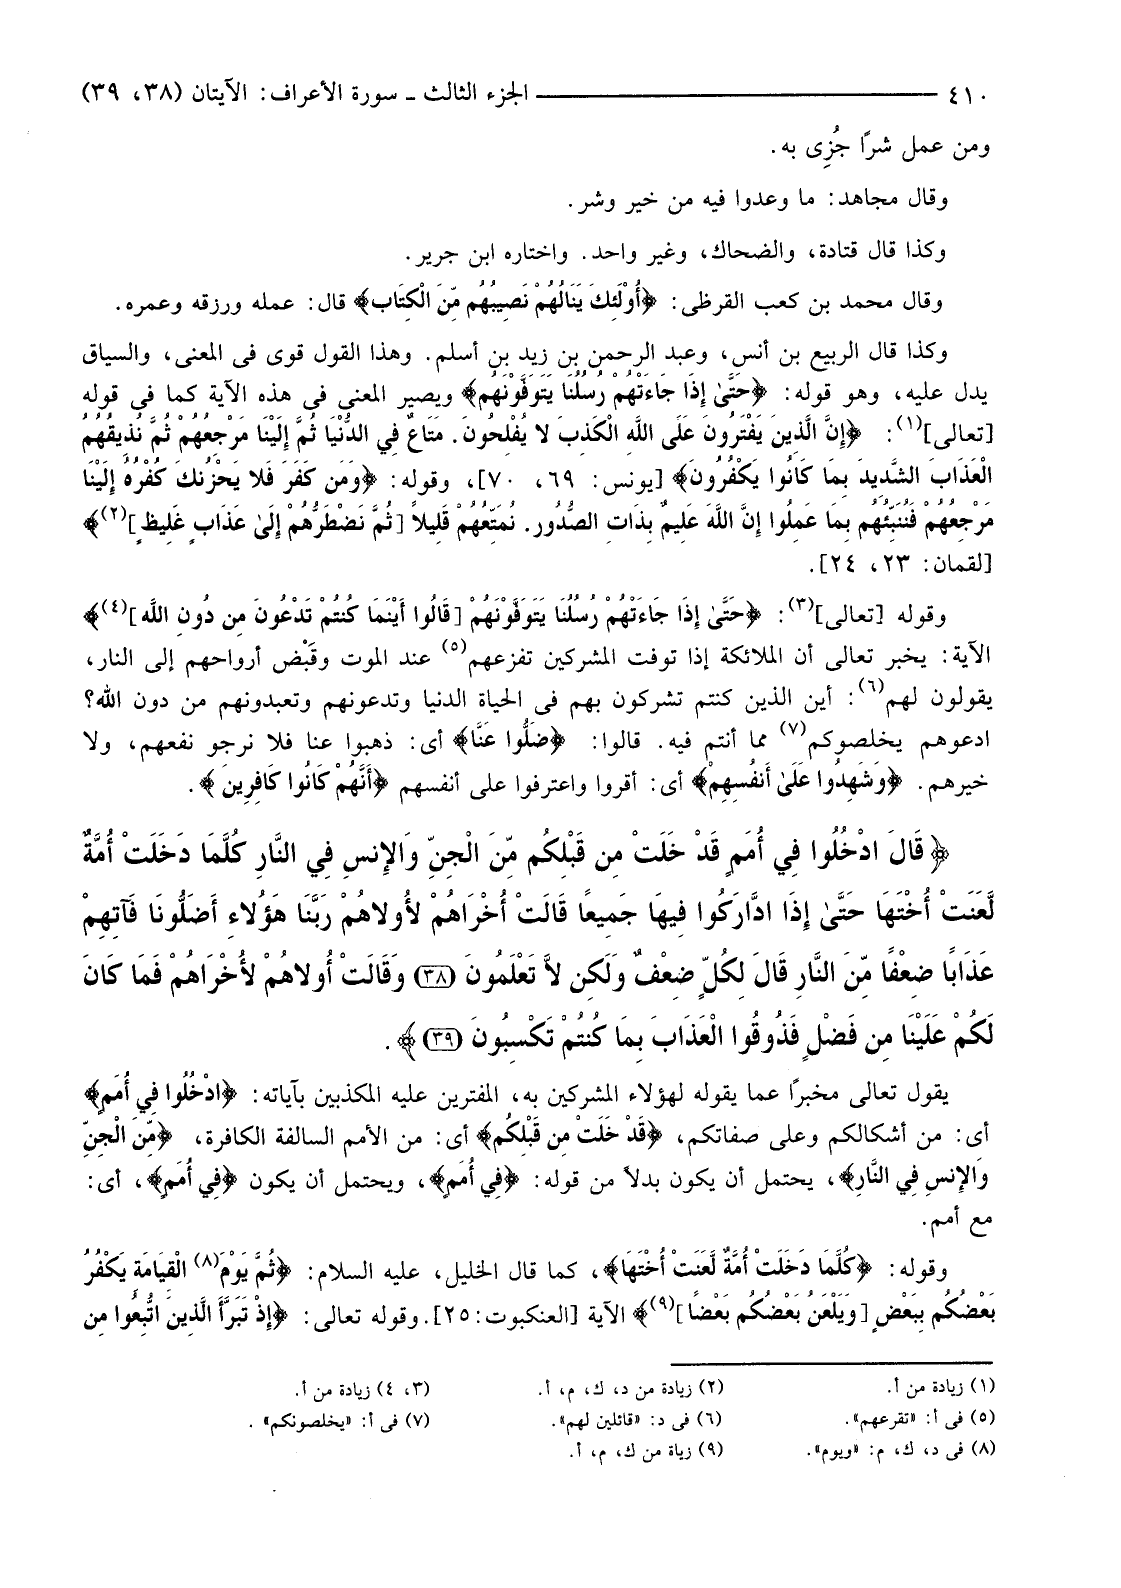 ٤١٠ الجزء الثالث ـ سورة الأعراف: الآيتان (٣٨، ٣٩)
ومن عمل شرًا جُزِى به.
وقال مجاهد: ما وعدوا فيه من خير وشر.
وكذا قال قتادة، والضحاك، وغير واحد. واختاره ابن جرير.
وقال محمد بن كعب القرظى: ﴿أُوْلَئِكَ يَنَالُهُمْ نَصِيبُهُم مِّنَ الْكِتَاب﴾ قال: عمله ورزقه وعمره.
وكذا قال الربيع بن أنس، وعبد الرحمن بن زيد بن أسلم. وهذا القول قوى فى المعنى، والسياق
يدل عليه، وهو قوله: ﴿حَتَّىٰ إِذَا جَاءَتْهُمْ رُسُلُنَا يَتَوَفَّوْنَهُم﴾ ويصير المعنى فى هذه الآية كما فى قوله
[تعالى](١): ﴿إِنَّ الَّذِينَ يَفْتَرُونَ عَلَى اللَّهِ الْكَذِبَ لا يُفْلِحُونَ. مَتَاعٌ فِي الدُّنْيَا ثُمَّ إِلَيْنَا مَرْجِعُهُمْ ثُمَّ نُذِيقُهُمُ
الْعَذَابَ الشَّدِيدَ بِمَا كَانُوا يَكْفُرُونَ﴾ [يونس: ٦٩، ٧٠]، وقوله: ﴿وَمَن كَفَرَ فَلا يَحْزُنكَ كُفْرُهُ إِلَيْنَا
مَرْجِعُهُمْ فَنُنَبِّئُهُم بِمَا عَمِلُوا إِنَّ اللَّهَ عَلِيمٌ بِذَاتِ الصُّدُورِ. نُمَتِّعُهُمْ قَلِيلاً [ثُمَّ نَضْطَرُّهُمْ إِلَىٰ عَذَابٍ غَلِيظٍ](٢)﴾
[لقمان: ٢٣، ٢٤].
وقوله [تعالى](٣): ﴿حَتَّىٰ إِذَا جَاءَتْهُمْ رُسُلُنَا يَتَوَفَّوْنَهُمْ [قَالُوا أَيْنَمَا كُنتُمْ تَدْعُونَ مِن دُونِ اللَّه](٤)﴾
الآية: يخبر تعالى أن الملائكة إذا توفت المشركين تفزعهم(٥) عند الموت وقَبْض أرواحهم إلى النار،
يقولون لهم(٦): أين الذين كنتم تشركون بهم فى الحياة الدنيا وتدعونهم وتعبدونهم من دون الله؟
ادعوهم يخلصوكم(٧) مما أنتم فيه. قالوا: ﴿ضَلُّوا عَنَّا﴾ أى: ذهبوا عنا فلا نرجو نفعهم، ولا
خيرهم. ﴿وَشَهِدُوا عَلَىٰ أَنفُسِهِمْ﴾ أى: أقروا واعترفوا على أنفسهم ﴿أَنَّهُمْ كَانُوا كَافِرِينَ﴾.
﴿قَالَ ادْخُلُوا فِي أُمَمٍ قَدْ خَلَتْ مِن قَبْلِكُم مِّنَ الْجِنِّ وَالإِنسِ فِي النَّارِ كُلَّمَا دَخَلَتْ أُمَّةٌ
لَّعَنَتْ أُخْتَهَا حَتَّىٰ إِذَا ادَّارَكُوا فِيهَا جَمِيعاً قَالَتْ أُخْرَاهُمْ لأُولاهُمْ رَبَّنَا هَؤُلاءِ أَضَلُّونَا فَآتِهِمْ
عَذَابًا ضِعْفًا مِّنَ النَّارِ قَالَ لِكُلٍّ ضِعْفٌ وَلَكِن لاَّ تَعْلَمُونَ (٣٨) وَقَالَتْ أُولاهُمْ لأُخْرَاهُمْ فَمَا كَانَ
لَكُمْ عَلَيْنَا مِن فَضْلٍ فَذُوقُوا الْعَذَابَ بِمَا كُنتُمْ تَكْسِبُونَ (٣٩)﴾.
يقول تعالى مخبرًا عما يقوله لهؤلاء المشركين به، المفترين عليه المكذبين بآياته: ﴿ادْخُلُوا فِي أُمَمٍ﴾
أى: من أشكالكم وعلى صفاتكم، ﴿قَدْ خَلَتْ مِن قَبْلِكُم﴾ أى: من الأمم السالفة الكافرة، ﴿مِّنَ الْجِنِّ
وَالإِنسِ فِي النَّارِ﴾، يحتمل أن يكون بدلاً من قوله: ﴿فِي أُمَمٍ﴾، ويحتمل أن يكون ﴿فِي أُمَمٍ﴾، أى:
مع أمم.
وقوله: ﴿كُلَّمَا دَخَلَتْ أُمَّةٌ لَّعَنَتْ أُخْتَهَا﴾، كما قال الخليل، عليه السلام: ﴿ثُمَّ يَوْمَ(٨) الْقِيَامَةِ يَكْفُرُ
بَعْضُكُم بِبَعْضٍ [وَيَلْعَنُ بَعْضُكُم بَعْضًا](٩)﴾ الآية [العنكبوت: ٢٥]. وقوله تعالى: ﴿إِذْ تَبَرَّأَ الَّذِينَ اتُّبِعُوا مِن
(١) زيادة من أ. (٢) زيادة من د، ك، م، أ. (٣، ٤) زيادة من أ.
(٥) فى أ: «تقرعهم». (٦) فى د: «قائلين لهم». (٧) فى أ: «يخلصونكم».
(٨) فى د، ك، م: «ويوم». (٩) زياة من ك، م، أ.